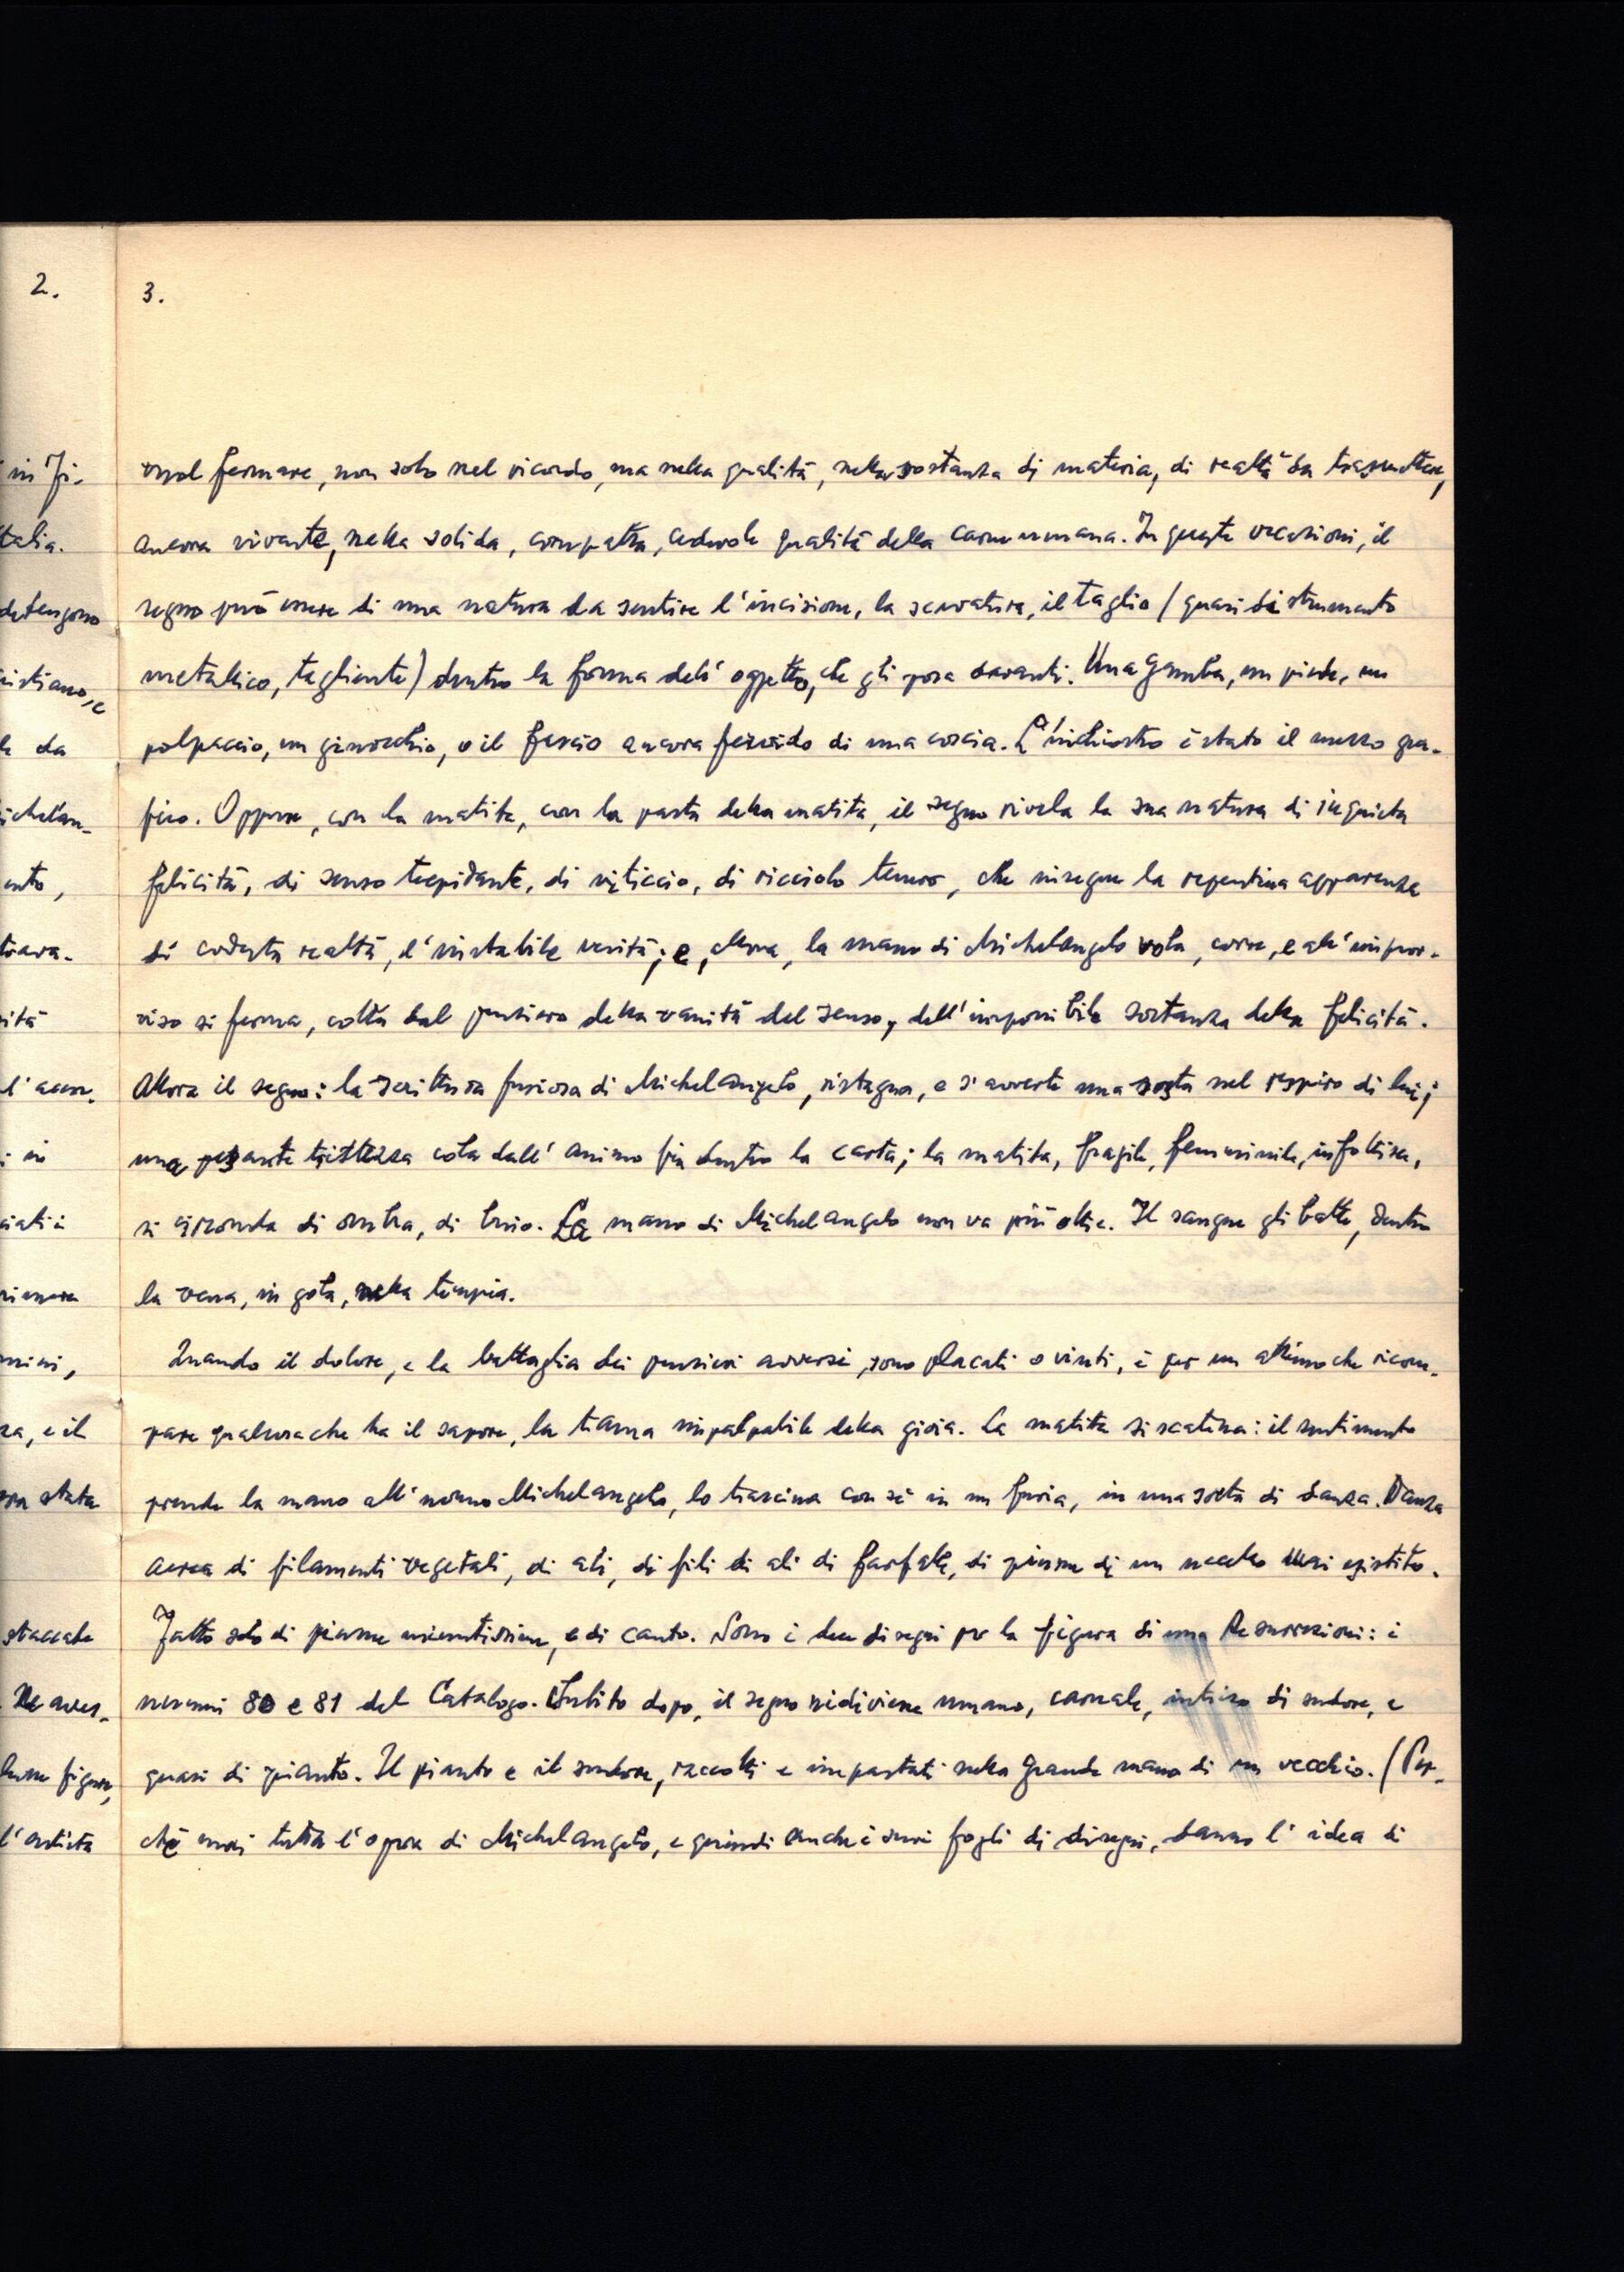 2.
in Fi-
talia.
detengono
istiano, e
da
ichelan-
ento,
trava-
ità
l'accu-
in
ciati i
mini,
za, e il
stata
staccate
Ne aves-
figure,
l'artista
3.
vuol fermare, non solo nel ricordo, ma nella qualità, nella sostanza di materia, di realtà da trasmettere,
ancora vivente, nella solida, compatta, cedevole qualità della carne umana. In queste occasioni, il
segno può essere di una natura da sentire l'incisione, la scavatura, il taglio (quasi di strumento
metallico, tagliente) dentro la forma dell'oggetto, che gli posa davanti. Una gamba, un piede, un
polpaccio, un ginocchio, o il fascio ancora fervido di una coscia. L'inchiostro è stato il mezzo gra-
fico. Oppure, con la matita, con la pasta della matita, il segno rivela la sua natura di inquieta
felicità, di senso trepidante, di viticcio, di ricciolo tenero, che insegue la repentina apparenza
di codesta realtà, l'instabile verità; e, allora, la mano di Michelangelo vola, corre, e all'improv-
viso si ferma, colta dal pensiero della vanità del senso, dell'impossibile sostanza della felicità.
Allora il segno: la scrittura furiosa di Michelangelo, ristagna, e s'avverte una sosta nel respiro di lui;
una pesante tristezza cola dall'animo fin dentro la carta; la matita, fragile, femminile, infoltisce,
si circonda di ombra, di buio. La mano di Michelangelo non va più oltre. Il sangue gli batte, dentro
la vena, in gola, nella tempia.
Quando il dolore, e la battaglia dei pensieri avversi, sono placati o vinti, è per un attimo che ricom-
pare qualcosa che ha il sapore, la trama impalpabile della gioia. La matita si scatena: il sentimento
prende la mano all'uomo Michelangelo, lo trascina con sé in un furia, in una sorta di danza. Danza
aerea di filamenti vegetali, di ali, di fili di ali di farfalle, di piume di un uccello mai esistito.
Fatto solo di piume minutissime, e di canto. Sono i due disegni per la figura di una Resurrezione: i
numeri 80 e 81 del Catalogo. Subito dopo, il segno ridiviene umano, carnale, intriso di sudore, e
quasi di pianto. Il pianto e il sudore, raccolti e impastati nella grande mano di un vecchio. (Per-
ché mai tutta l'opera di Michelangelo, e quindi anche i suoi fogli di disegni, danno l'idea di